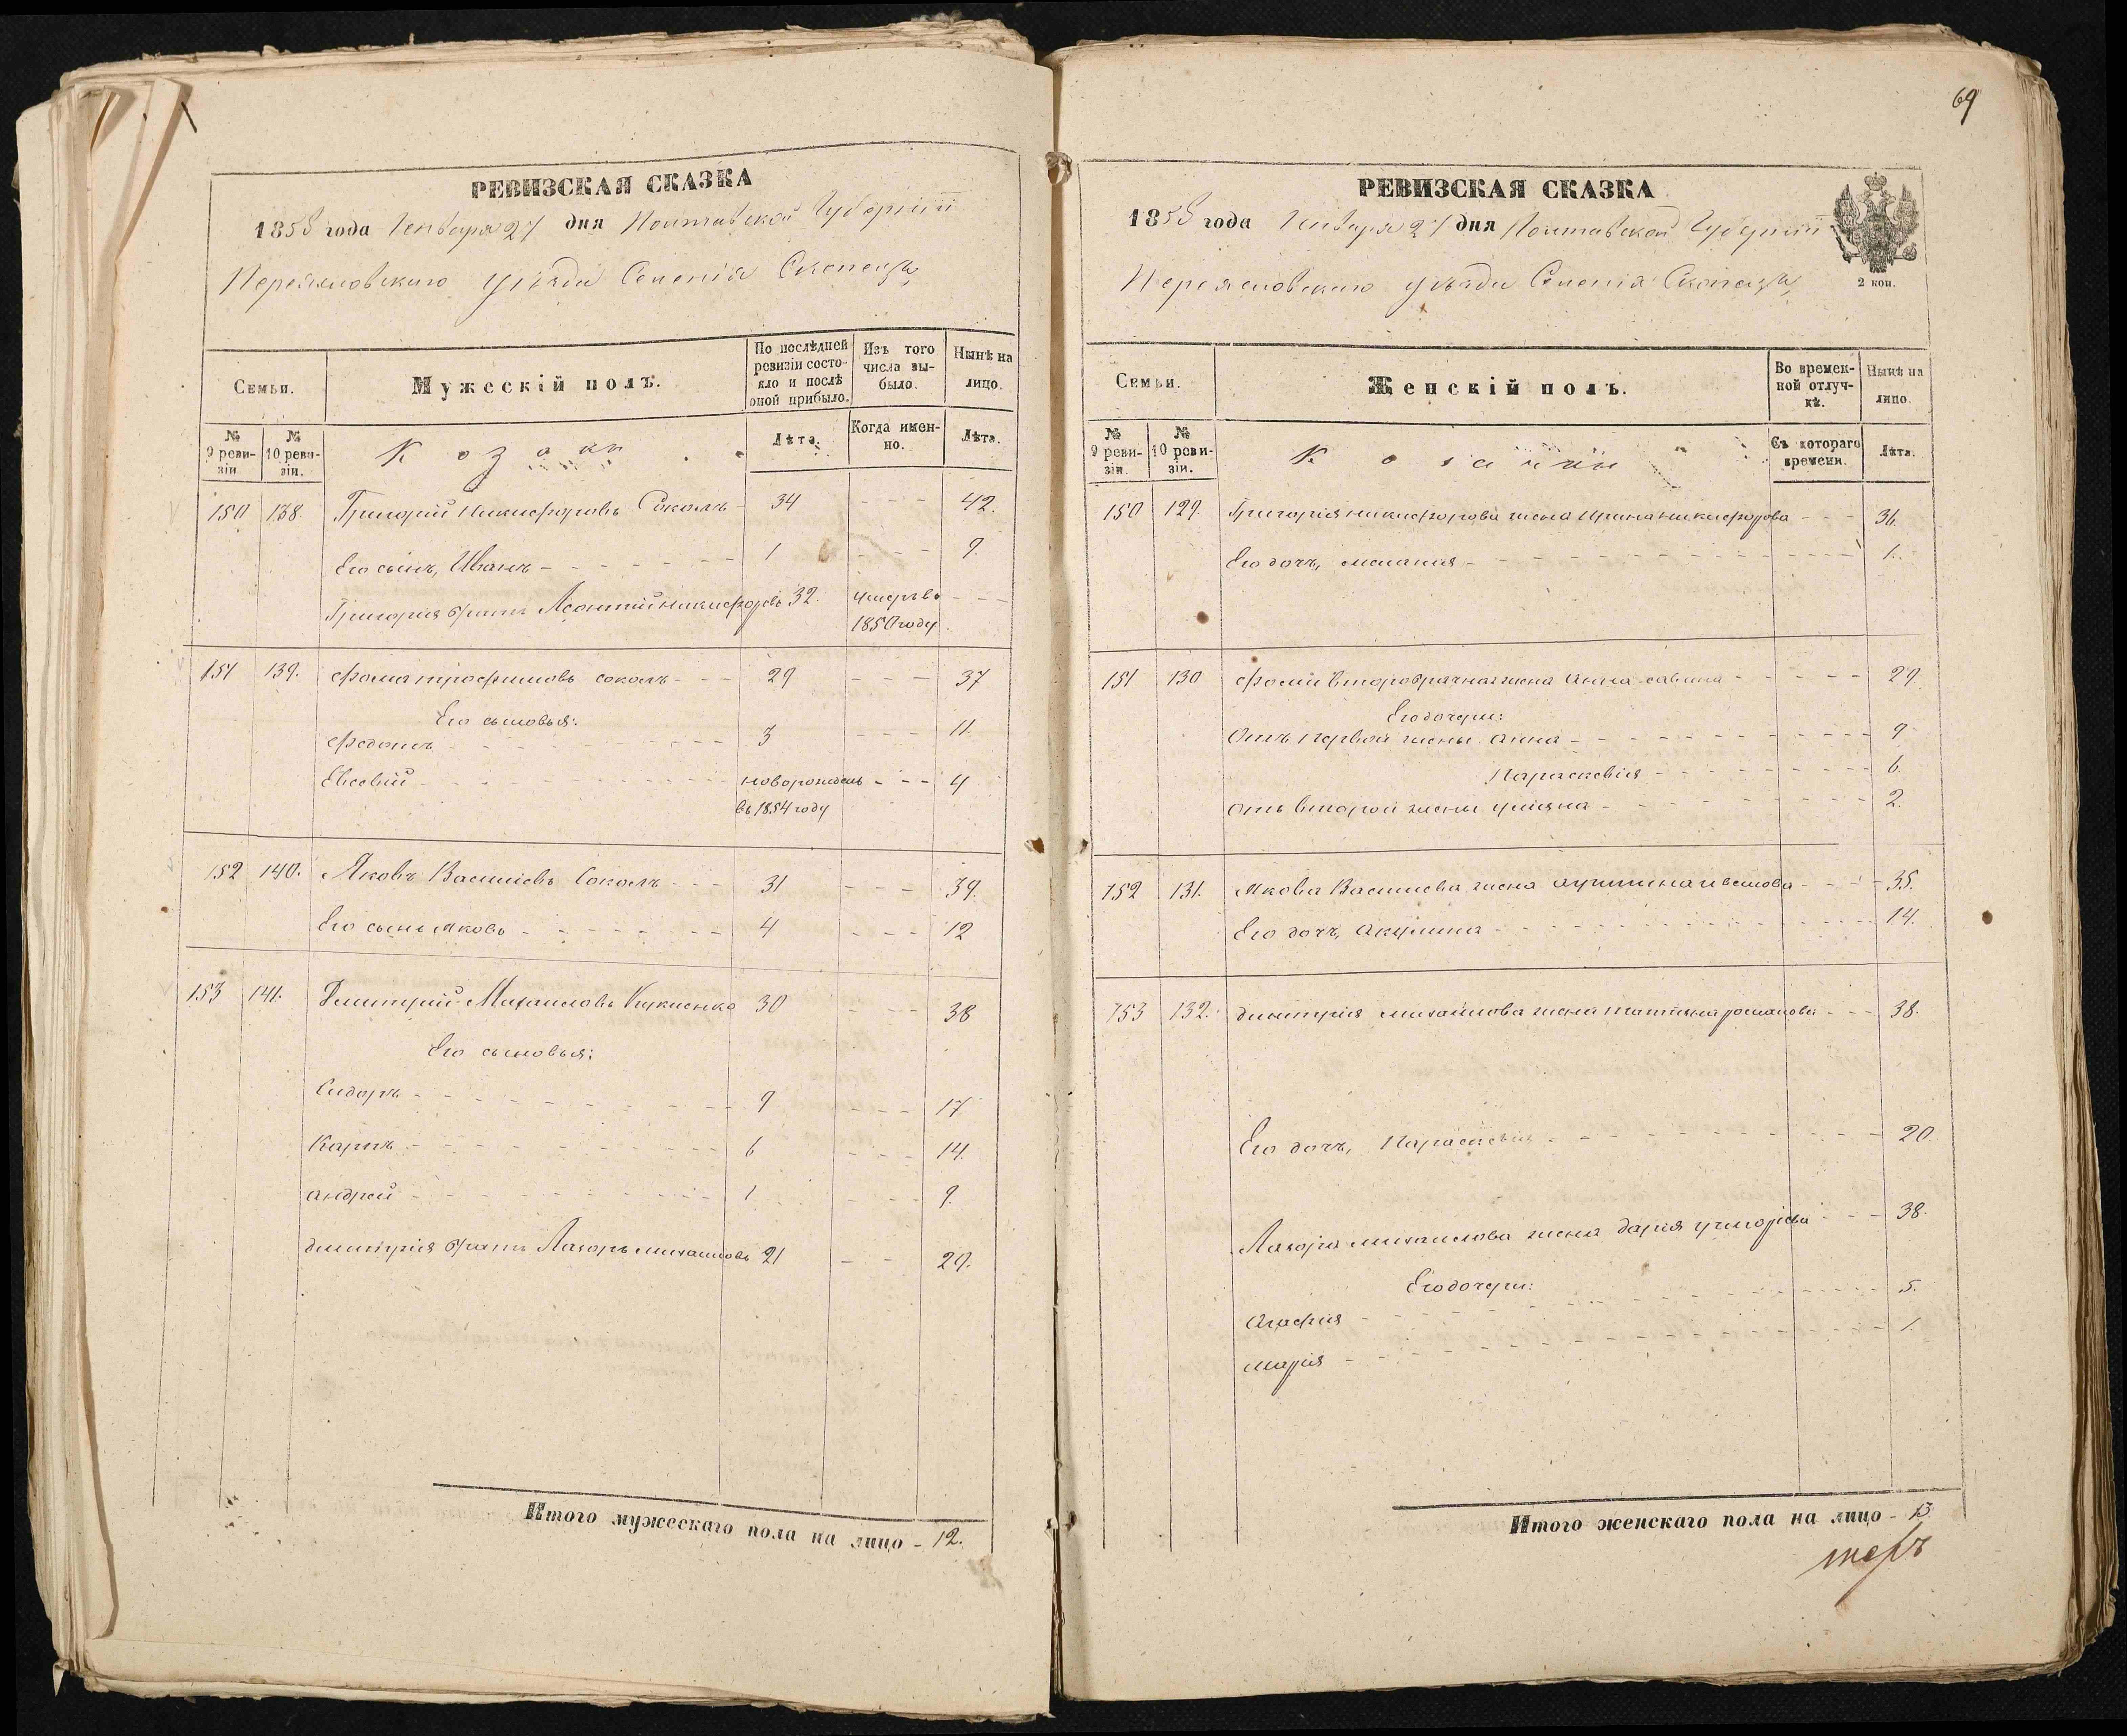 РЕВИЗСКАЯ СКАЗКА
1858 года Генваря 27 дня Полтавской Губерніи
Переясловскаго уѣзда Селенія Скопецъ
Семьи. Мужескій полъ. По послѣдней ревизіи состояло и послѣ оной прибыло. Изъ того числа выбыло. Нынѣ на лицо.
№ 9 ревизіи № 10 ревизіи. Козаки Лѣта. Когда именно. Лѣта.
150 138. Григорій Никифоровъ Соколъ 34 42.
Его сынъ, Иванъ 1 9.
Григорія братъ Леонтій никифоровъ 32. умеръ въ
1850 году
151 139. Фома трофимовъ соколъ 29 37
Его сыновья:
Федотъ 3 11.
Евсевій новорожденъ 4
въ 1854 году
152 140. Яковъ Василіевъ Соколъ 31 39.
Его сынъ Яковъ 4 12
153 141. Дмитрій Михаиловъ Кукиенко 30 38
Его сыновья:
Сидоръ 9 17
Карпъ 6 14.
андрей 1 9.
дмитрія братъ Лазоръ михаиловъ 21 29.
Итого мужескаго пола на лицо - 12.
69
РЕВИЗСКАЯ СКАЗКА
1858 года Генваря 27 дня Полтавской Губерніи
2 коп.
Переясловскаго уѣзда Селенія Скопецъ
Семьи. Женскій полъ. Во временной отлучкѣ. Нынѣ на лицо.
№ 9 ревизіи. № 10 ревизіи. Козачки Съ котораго времени. Лѣта.
150 129. Григорія никифорова жена Ирина никифорова 36.
Его дочь, меланія 1.
151 130 Фомы второбрачная жена Анна савина 29.
Его дочери:
Отъ первой жены анна 9
Параскевія 6.
отъ второй жены уліяна 2.
152 131. Якова Василиева жена 35.
Его дочь, акулина 14.
153 132. дмитрія михайлова жена татіяна романова 38.
Его дочь, Параскевія 20.
Лазора михаилова жена дарія григоріева 38.
Его дочери:
Агафія 5.
марія 1.
Итого женскаго пола на лицо - 13.